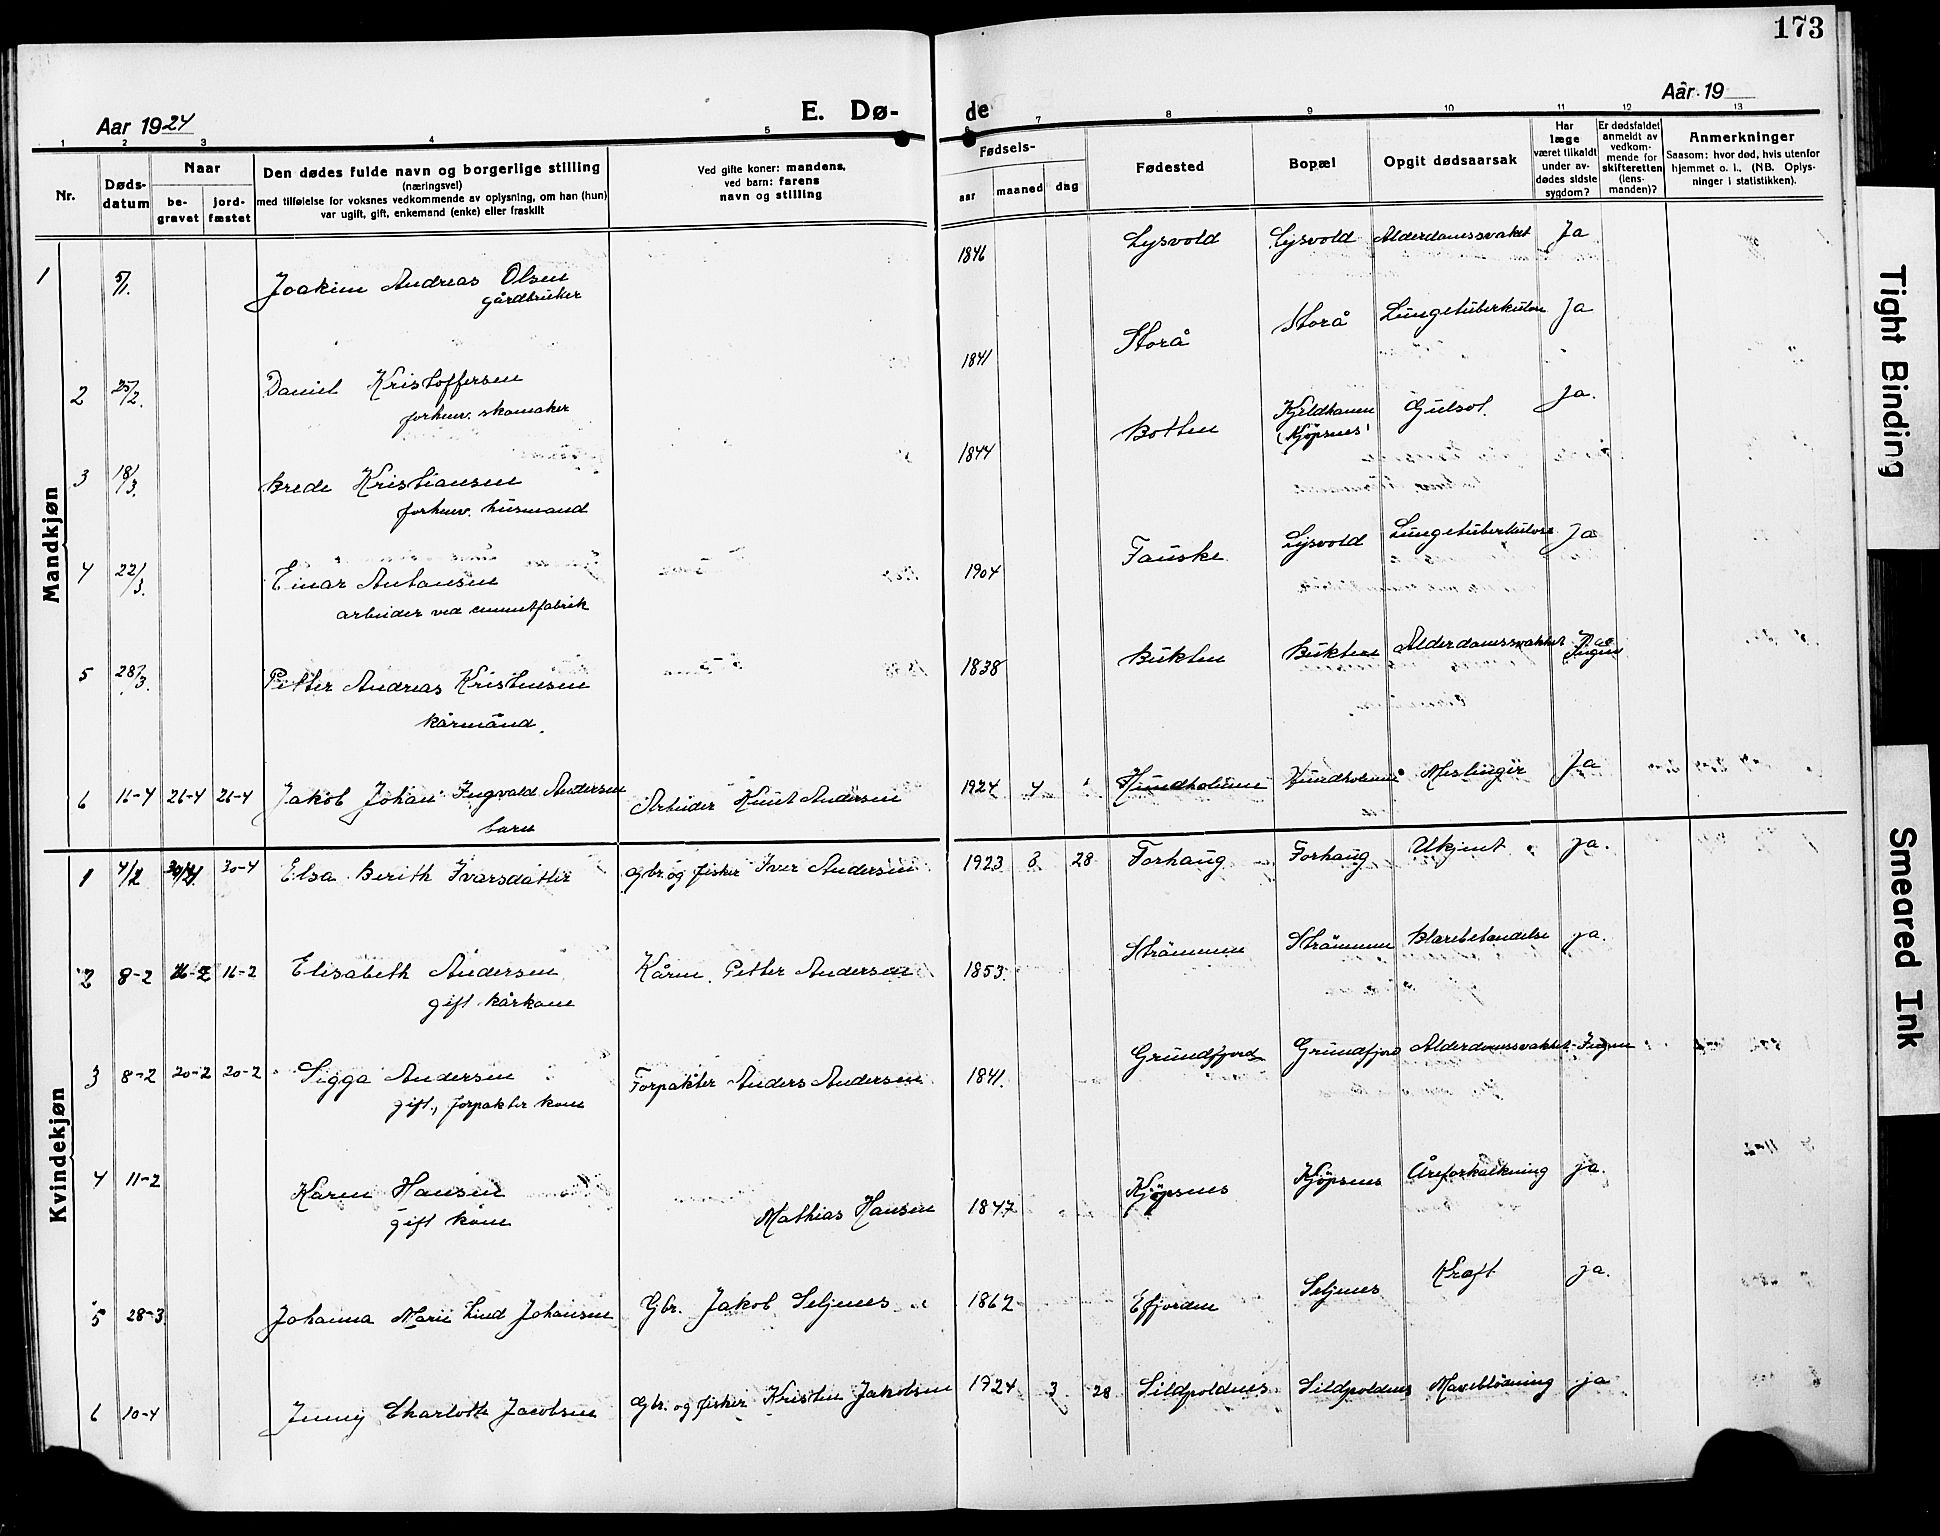 173
Aar 1924
E. Dø-
de
Aar 19
1 2 3 4 5 6 7 8 9 10 11 12 13
Nr.
Døds-
datum
Naar
be-
gravet
jord-
fæstet
Den dødes fulde navn og borgerlige stilling
(næringsvei)
med tilføielse for voksnes vedkommende av oplysning, om han (hun)
var ugift, gift, enkemand (enke) eller fraskilt
Ved gifte koner: mandens,
ved barn: farens
navn og stilling
Fødsels-
aar
maaned
dag
Fødested
Bopæl
Opgit dødsaarsak
Har
læge
været tilkaldt
under av-
dødes sidste
sygdom?
Er dødsfaldet
anmeldt av
vedkom-
mende for
skifteretten
(lens-
manden)?
Anmerkninger
Saasom: hvor død, hvis utenfor
hjemmet o. l., (NB. Oplys-
ninger i statistikken).
Mandkjøn
1 5/1. Joakim Andreas Olsen 1846 Lysvold Lysvold Alderdomssvaket Ja
gårdbruker
2 25/2. Daniel Kristoffersen 1841 Storå Storå Lungetuberkulose Ja
forhenv. skomaker
3 18/3. Brede Kristiansen 1844 Botten Kjeldhaven Gulsot. Ja.
forhenv. husmand (Kjøpsnes)
4 22/3. Einar Antonsen 1904 Fauske Lysvold Lungetuberkulose Ja
arbeider ved cementfabrik
5 28/3. Petter Andreas Kristensen 1838 Bukten Bukten Alderdomssvakhet Ingen
kårmand.
6 16-4 26-4 26-4 Jakob Johan Ingvald Andersen Arbeider Knut Andersen 1924 4 Hundholmen Hundholmen Meslinger Ja
barn
Kvindekjøn
1 4/2 30/4 30-4 Elsa Berith Ivarsdatter Gbr. og fisker Iver Andersen 1923 8 28 Forhaug Forhaug Ukjent ja.
2 8-2 16-2 16-2 Elisabeth Andersen Kårm. Petter Andersen 1853 Strømmen Strømmen Blærebetendelse ja.
gift kårkone
3 8-2 20-2 20-2 Sigga Andersen Forpakter Anders Andersen 1841. Grundfjord Grundfjord Alderdomssvakhet Ingen
gift, forpakter kone
4 11-2 Karen Hansen Mathias Hansen 1847 Kjøpsnes Kjøpsnes Åreforkalkning ja.
gift kone
5 28-3 Johanna Marie Lind Johansen Gbr. Jakob Seljenes 1862 Efjorden Seljenes Kræft ja.
6 10-4 Jenny Charlotte Jacobsen Gbr. og fisker Kristen Jakobsen 1924 3 28 Sildpoldnes Sildpoldnes Maveblødning ja
Tight Binding
Smeared Ink